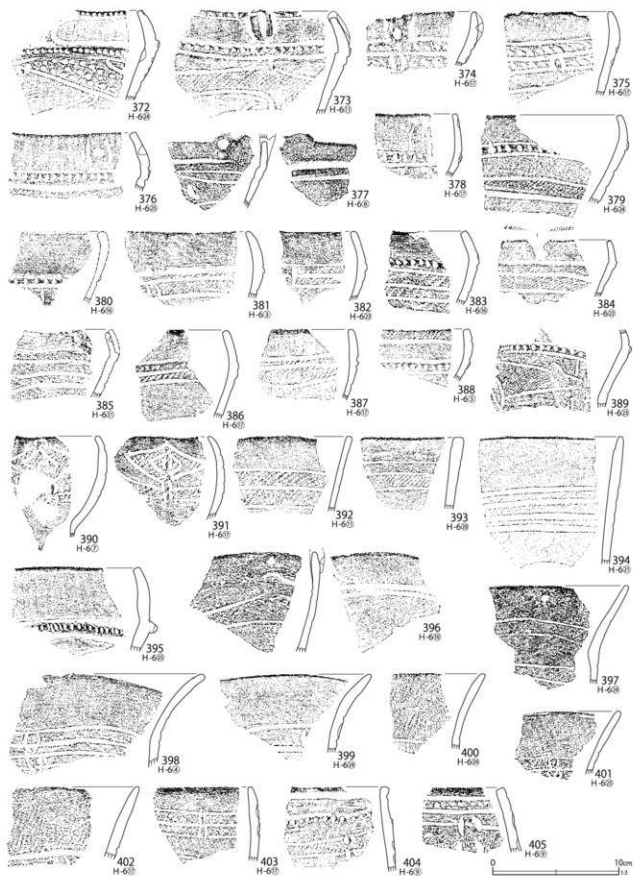 372
H-6
373
H-6⑪
374
H-6
375
H-6⑰
376
H-6
377
H-6⑧
378
H-6⑰
379
H-6
380
H-6
381
H-6③
382
H-6
383
H-6
384
H-6
385
H-6
386
H-6⑰
387
H-6⑰
388
H-6⑤
389
H-6
390
H-6⑦
391
H-6
392
H-6⑪
393
H-6
394
H-6
395
H-6
396
H-6
397
H-6
398
H-6④
399
H-6
400
H-6
401
H-6
402
H-6
403
H-6⑰
404
H-6⑨
405
H-6
0 10cm
1:3